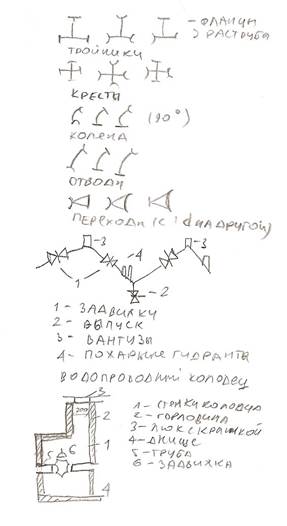 - ФЛАНЦЫ
) РАСТРУБА
ТРОЙНИКИ
КРЕСТЫ
(90°)
КОЛЕНА
ОТВОДИ
ПЕРЕХОДИ (С 1 d НА ДРУГОЙ)
3
4
3
1
2
1 - ЗАДВИЖКИ
2 - ВЫПУСК
3 - ВАНТУЗЫ
4 - ПОЖАРНЫЕ ГИДРАНТЫ
ВОДОПРОВОДНЫЙ КОЛОДЕЦ
3
700
2
1
5
6
4
1 - СТЕНКИ КОЛОДЦА
2 - ГОРЛОВИНА
3 - ЛЮК С КРЫШКОЙ
4 - ДНИЩЕ
5 - ТРУБА
6 - ЗАДВИЖКА